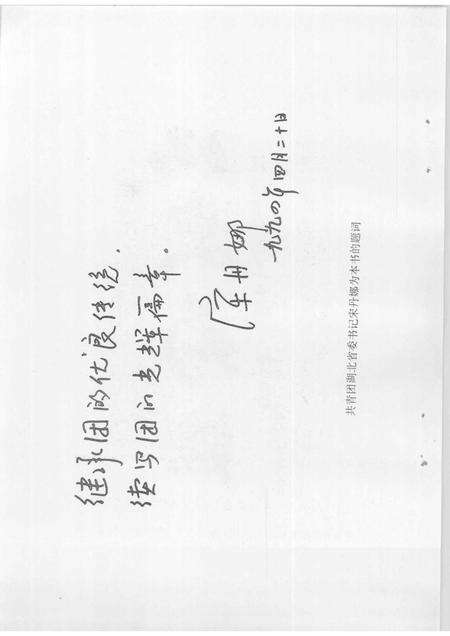 继承团的优良传统，
续写团的光辉篇章。
宋丹娜
一九九四年四月二十日
共青团湖北省委书记宋丹娜为本书的题词